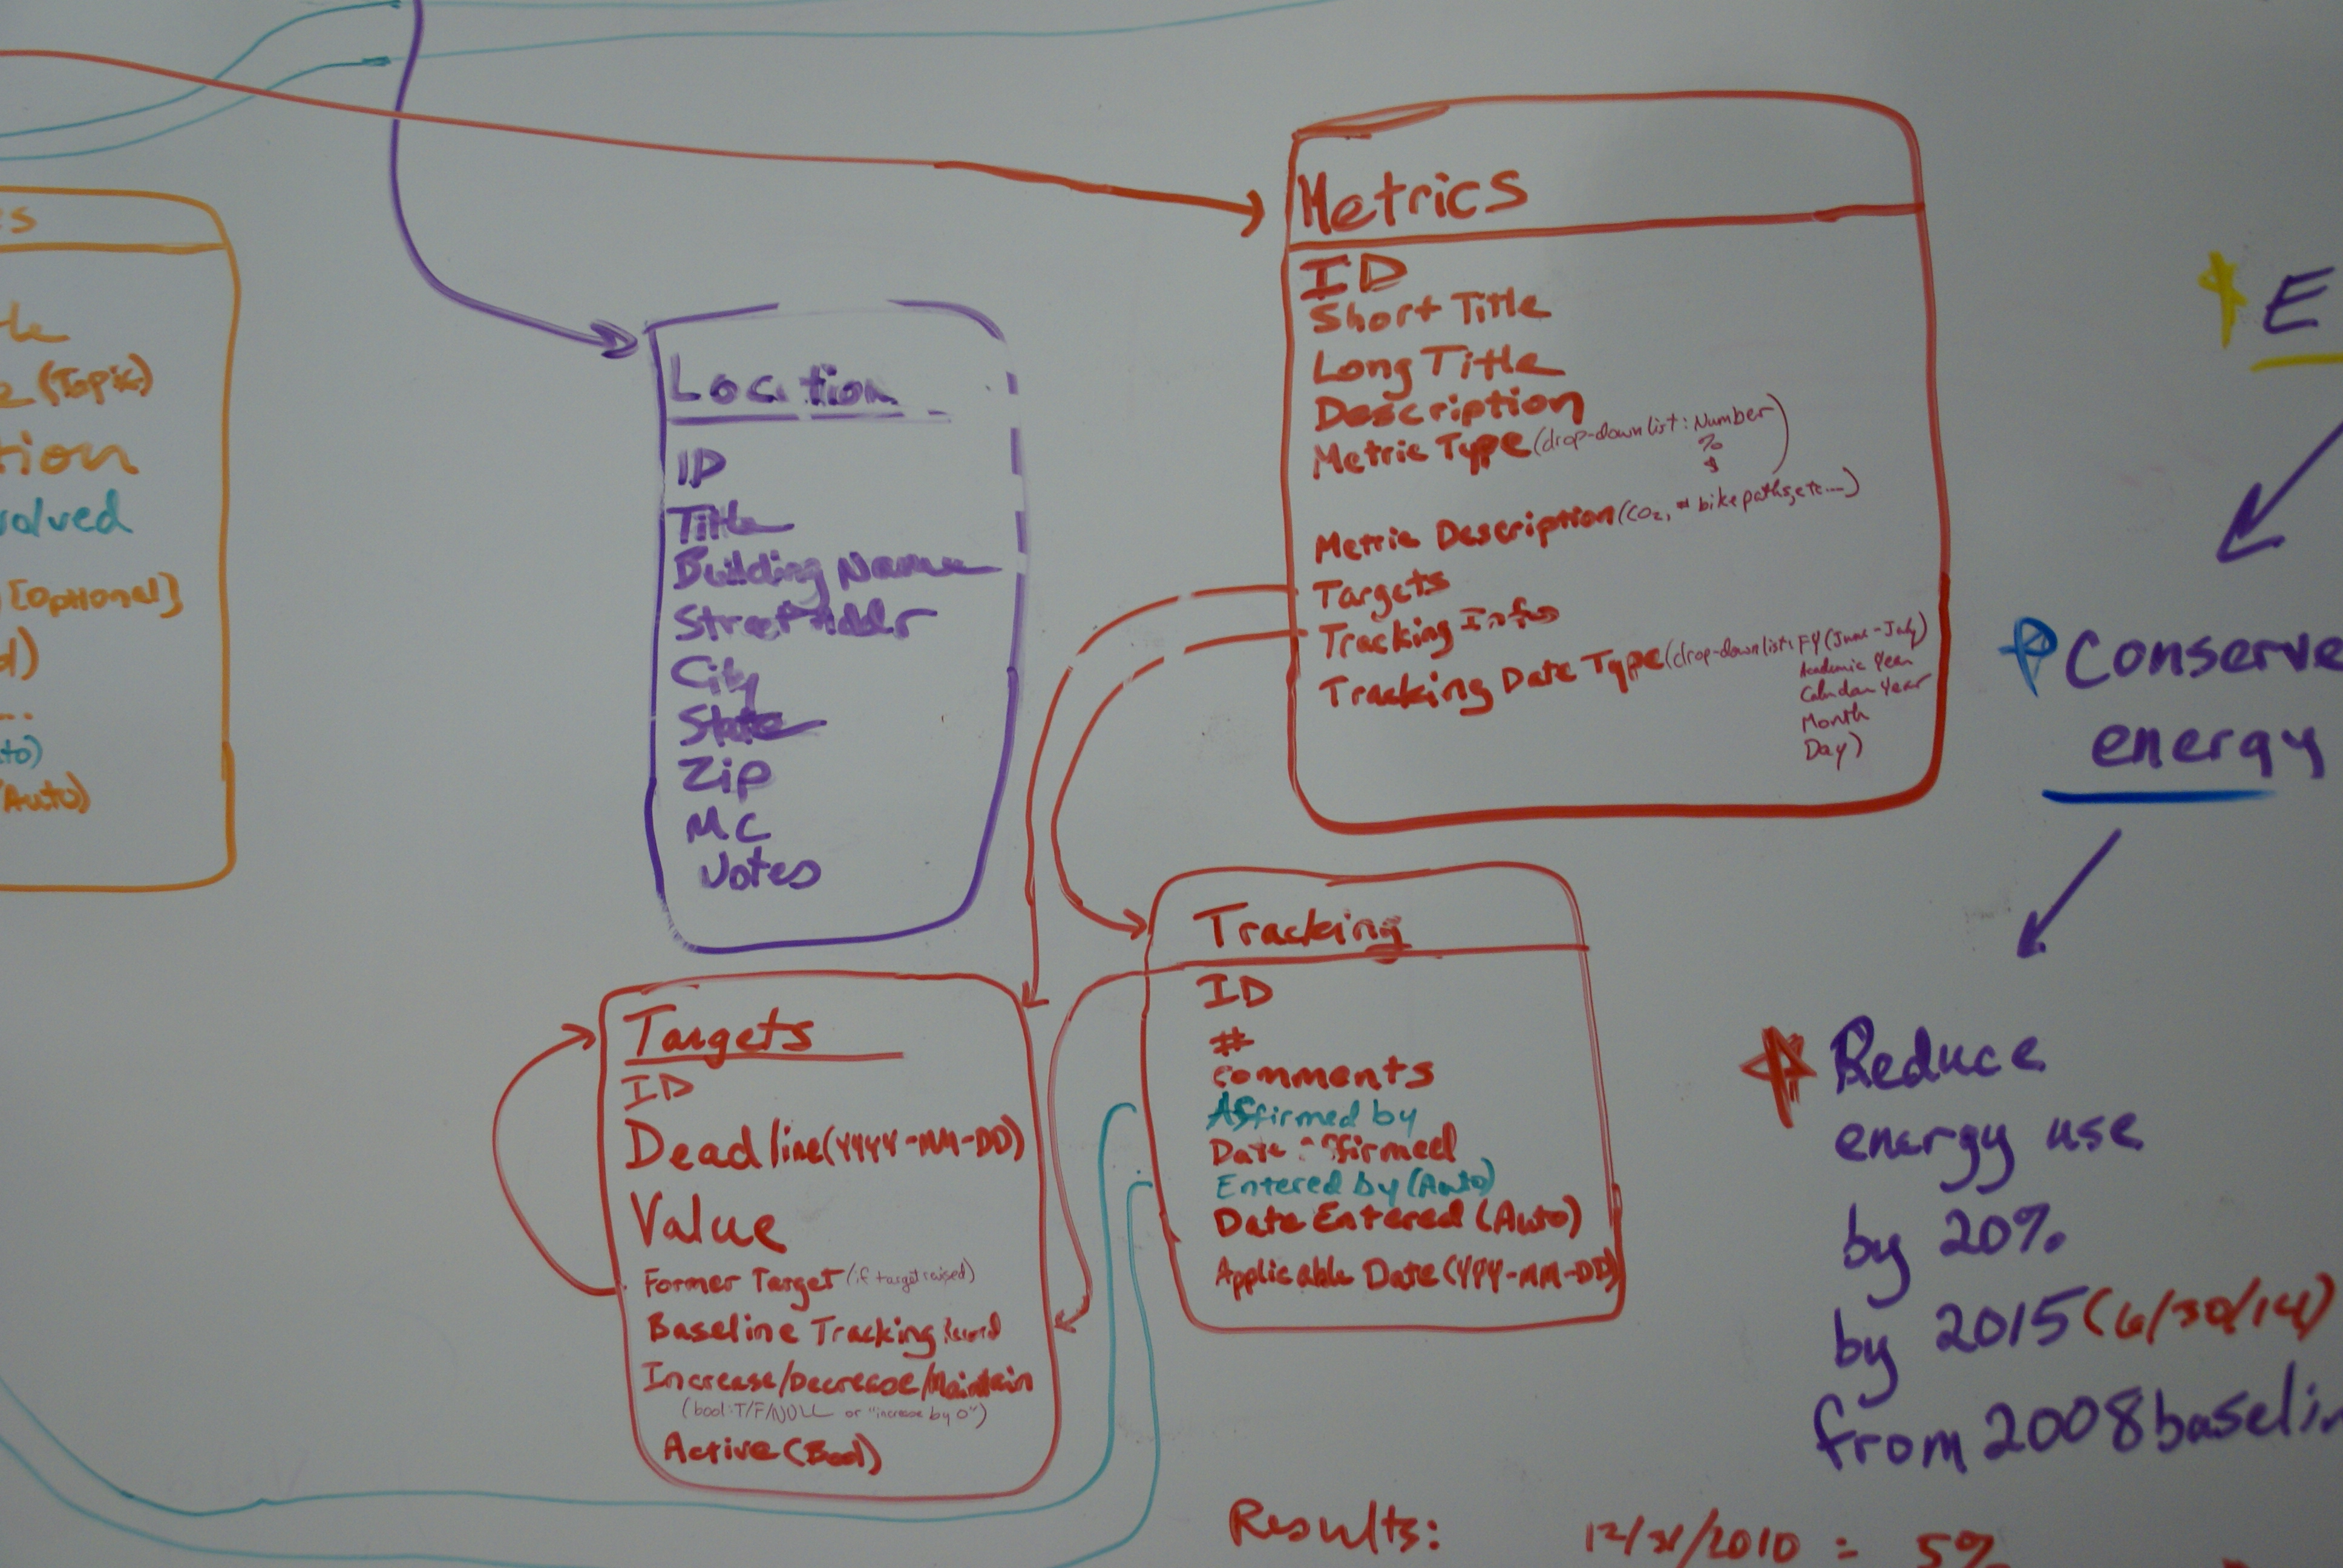 s
(Topic)
tion
olved
[optional]
d)
...
to)
(Auto)
Location
ID
Title
Building Name
Street Addr
City
State
Zip
MC
Notes
Metrics
ID
Short Title
Long Title
Description
Metric Type (drop-down list: Number
%
$)
Metric Description (CO2, # bike paths, etc...)
Targets
Tracking Info
Tracking Date Type (drop-down list: FY (June-July)
Academic Year
Calendar Year
Month
Day)
Targets
ID
Deadline (YYYY-MM-DD)
Value
Former Target (if target raised)
Baseline Tracking Record
Increase/Decrease/Maintain
(bool: T/F/NULL or "increase by 0")
Active (Bool)
Tracking
ID
#
comments
Affirmed by
Date affirmed
Entered by (Auto)
Date Entered (Auto)
Applicable Date (YYY-MM-DD)
E
Conserve
energy
Reduce
energy use
by 20%
by 2015 (6/30/14)
from 2008 baselin
Results: 12/31/2010 = 5%